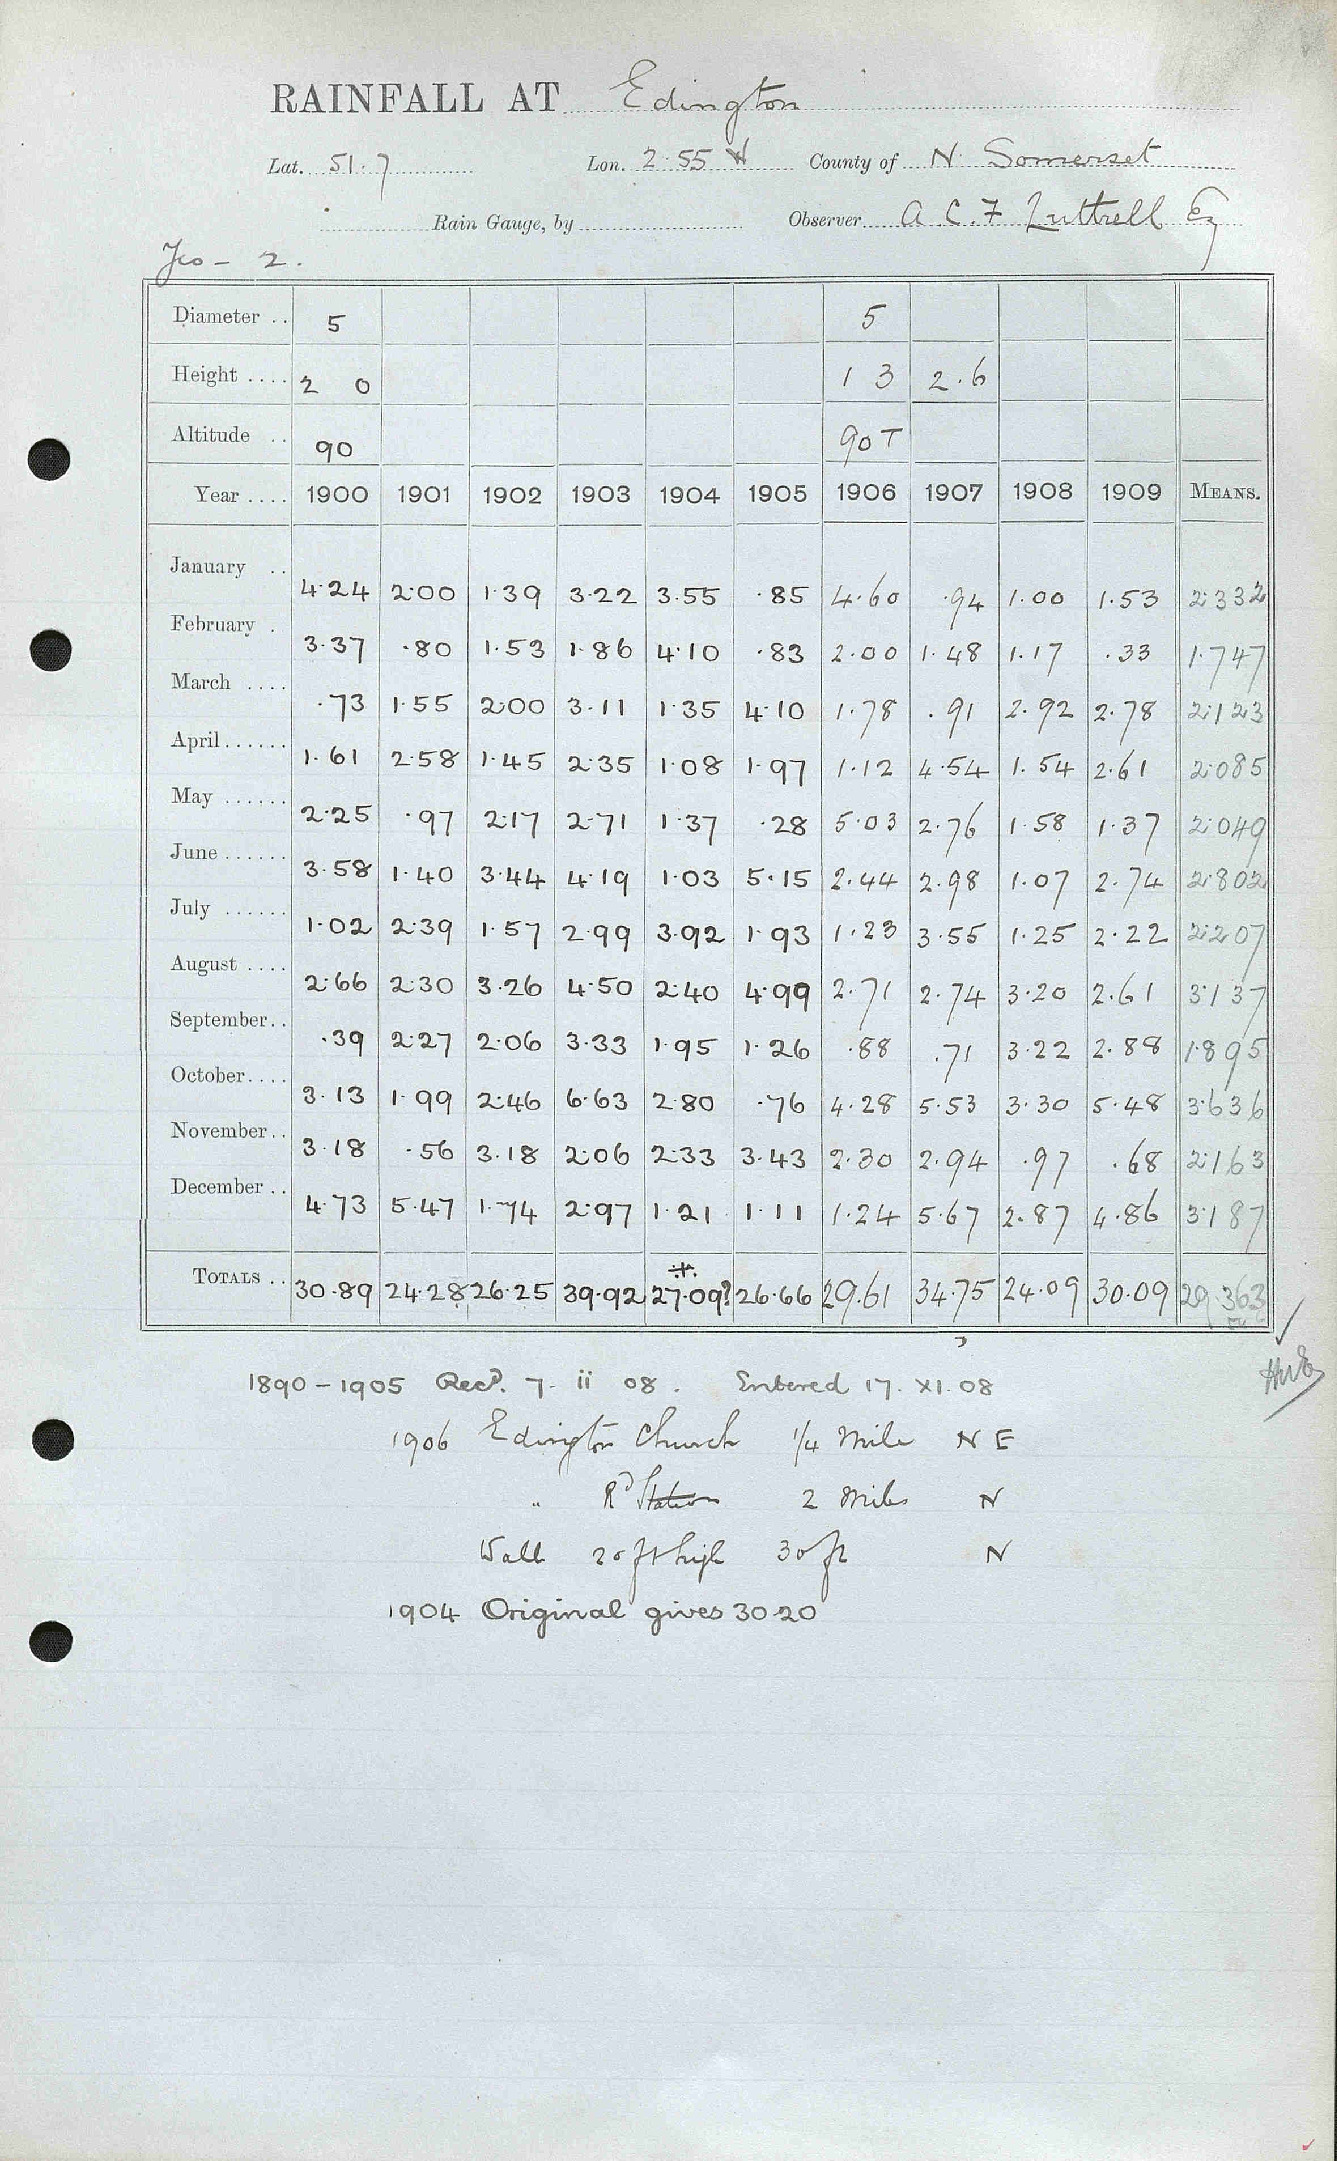 RAINFALL AT Edington
Lat. 51.7 Lon. 2.55 W County of N. Somerset
Rain Gauge, by Observer A C. F Luttrell Esq
2.
Diameter .. 5 5
Height .... 2 0 1 3 2.6
Altitude .. 90 90 T
Year .... 1900 1901 1902 1903 1904 1905 1906 1907 1908 1909 MEANS.
January .. 4.24 2.00 1.39 3.22 3.55 .85 4.60 .94 1.00 1.53 2.332
February . 3.37 .80 1.53 1.86 4.10 .83 2.00 1.48 1.17 .33 1.747
March .... .73 1.55 2.00 3.11 1.35 4.10 1.78 .91 2.92 2.78 2.123
April...... 1.61 2.58 1.45 2.35 1.08 1.97 1.12 4.54 1.54 2.61 2.085
May ...... 2.25 .97 2.17 2.71 1.37 .28 5.03 2.76 1.58 1.37 2.049
June ...... 3.58 1.40 3.44 4.19 1.03 5.15 2.44 2.98 1.07 2.74 2.802
July ...... 1.02 2.39 1.57 2.99 3.92 1.93 1.23 3.55 1.25 2.22 2.207
August .... 2.66 2.30 3.26 4.50 2.40 4.99 2.71 2.74 3.20 2.61 3.137
September.. .39 2.27 2.06 3.33 1.95 1.26 .88 .71 3.22 2.88 1.895
October.... 3.13 1.99 2.46 6.63 2.80 .76 4.28 5.53 3.30 5.48 3.636
November.. 3.18 .56 3.18 2.06 2.33 3.43 2.30 2.94 .97 .68 2.163
December .. 4.73 5.47 1.74 2.97 1.21 1.11 1.24 5.67 2.87 4.86 3.187
*
TOTALS .. 30.89 24.28 26.25 39.92 27.09? 26.66 29.61 34.75 24.09 30.09 29.363
1890-1905 Recd. 7. ii 08. Entered 17. XI. 08
1906 Edington Church 1/4 Mile N E
" Rd Station 2 Miles N
Wall 20 ft high 30 ft N
1904 Original gives 30.20